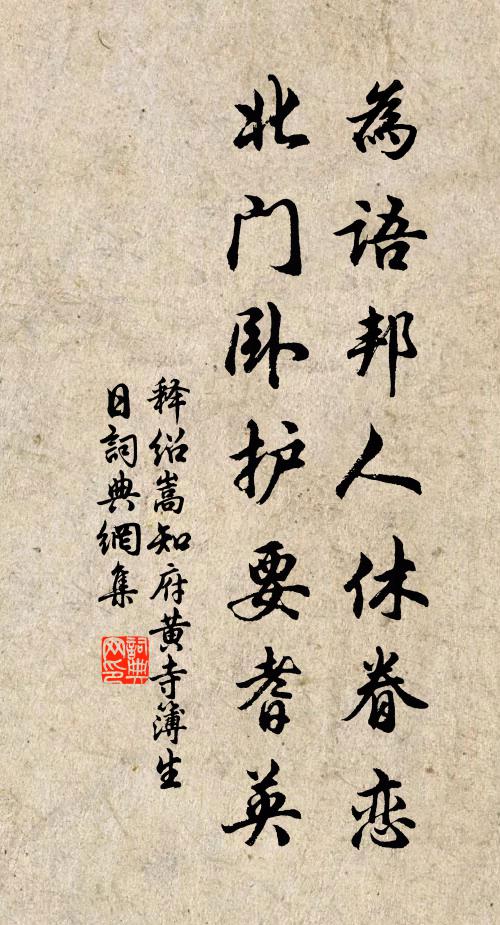 為語邦人休眷恋
北门卧护要耆英
释绍嵩知府黄寺簿生
日詞典網集
詞典网印